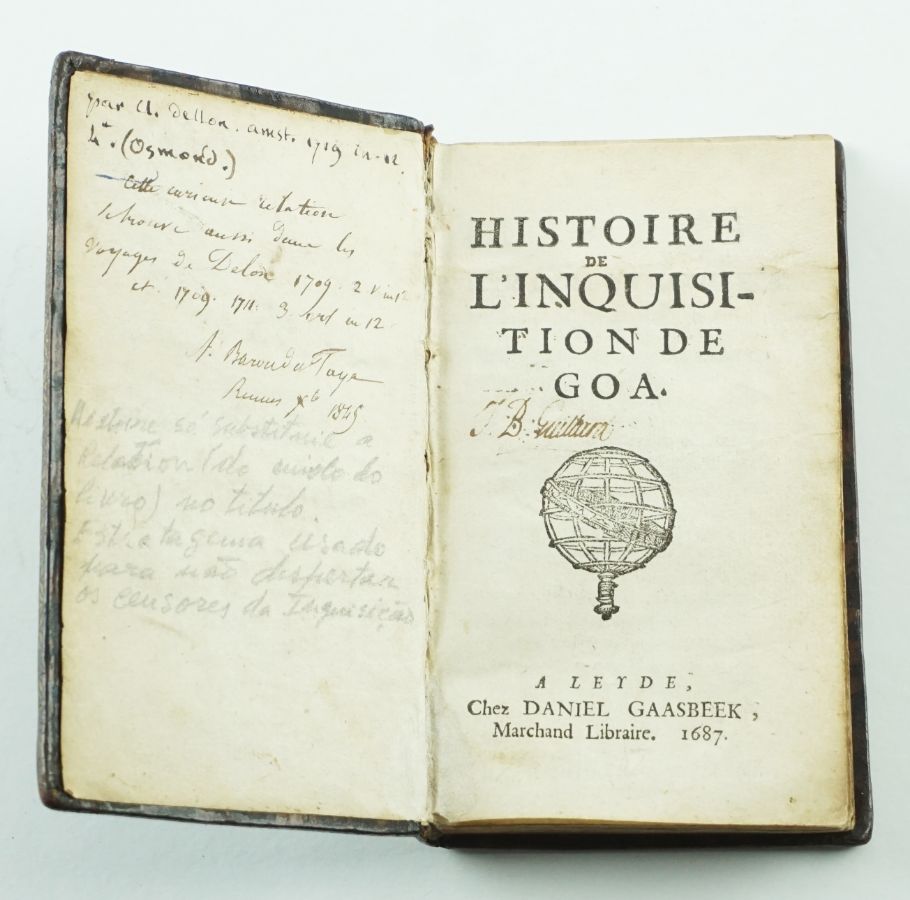 par C. Dellon. amst. 1719 in-12
4.t (Osmond.)
Cette curieuse relation
se trouve aussi dans les
Voyages de Delon 1709. 2 v in 12
et 1709. 1711. 3 vol in 12.
Baron du Taya
Rennes 1845
só substitui a
Relation (do miolo do
livro) no titulo.
Estratagema usado
para não despertar
os censores da Inquisição
HISTOIRE
DE
L'INQUISI-
TION DE
GOA.
J. B.
A LEYDE,
Chez DANIEL GAASBEEK,
Marchand Libraire. 1687.